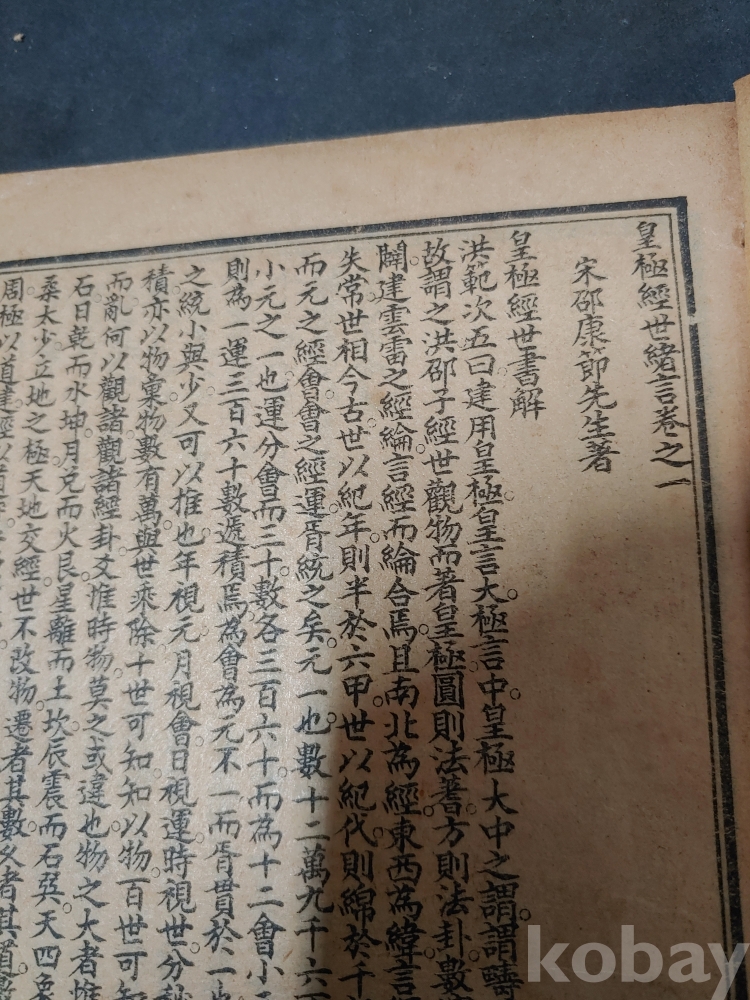 皇極經世緒言卷之一
宋邵康節先生著
皇極經世書解
洪範次五曰建用皇極。皇言大。極言中。皇極大中之謂。謂疇
故謂之洪。邵子經世觀物而著皇極。圓則法蓍。方則法卦。數
闢。建雲雷之經綸。言經而綸合焉。且南北為經。東西為緯。言
失常。世相今古。世以紀年則半於六甲。世以紀代則綿於千
而元之經會。會之經運。胥統之矣。元一也。數十二萬九千六百
小元之一也。運分會而三十。數各三百六十而為十二會。小
則為一運。三百六十數遞積焉。為會為元不一。而胥貫於一也
之統小與少。又可以推也。年視元。月視會。日視運。時視世。分
積。亦以物稟。物數有萬。與世乘除。十世可知。知以物。百世可知
而亂。何以觀諸。觀諸經。卦爻惟時物莫之或違也。物之大者惟
石。日乾而水坤。月兌而火艮。星離而土坎。辰震而石巽。天四象
柔太少。立地之極。天地交。經世不改物。遷者其數。久者其道。
周。極以道建。經以道
kobay